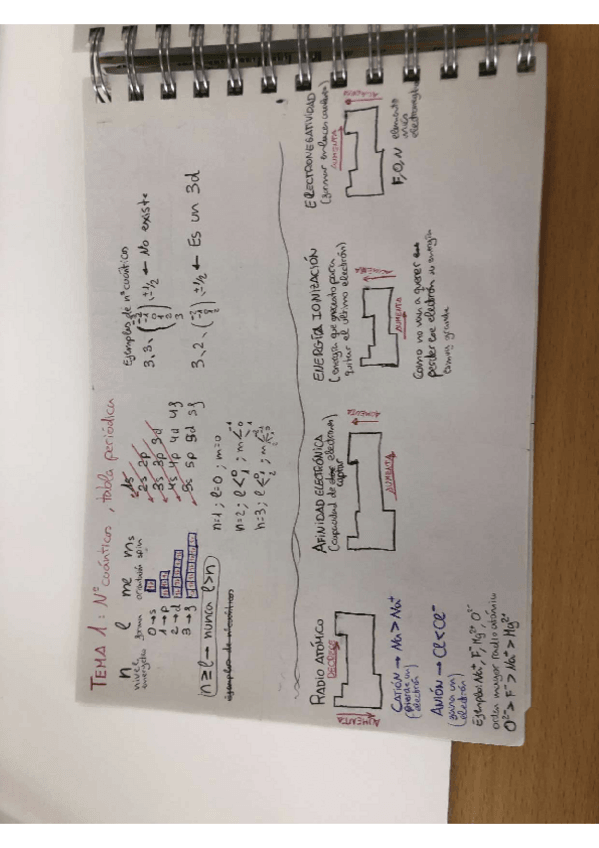 TEMA 1: Nº cuánticos, tabla periódica
n l me ms
nivel energético forma orientación spin
0→s
1→p
2→d
3→f
n≥l→ nunca l>n
Ejemplos de nº cuánticos
1s
2s 2p
3s 3p 3d
4s 4p 4d 4f
5s 5p 5d 5f
n=1; l=0; m=0
n=2; l< 0 1; m< -1 0 1
n=3; l< 0 1 2; m<
Ejemplos de nº cuánticos
3, 3, (-3 -2 -1 0 1 2 3), ±1/2 ← No existe
3, 2, (-2 -1 0 1 2), ±1/2 ← Es un 3d
RADIO ATÓMICO
DECRECE
AUMENTA
CATIÓN → Na > Na⁺
(pierde un electrón)
ANIÓN → Cl < Cl⁻
(gana un electrón)
Ejemplo: Na⁺, F⁻, Mg²⁺, O²⁻
orden mayor radio atómico
O²⁻ > F⁻ > Na⁺ > Mg²⁺
AFINIDAD ELECTRÓNICA
(capacidad de captar electrones)
AUMENTA
ENERGÍA IONIZACIÓN
(energía que necesito para
quitar el último electrón)
AUMENTA
Como no van a querer
perder ese electrón su energía
es muy grande
ELECTRONEGATIVIDAD
(formar enlaces covalentes)
AUMENTA
F, O, N elementos
más
electroneg